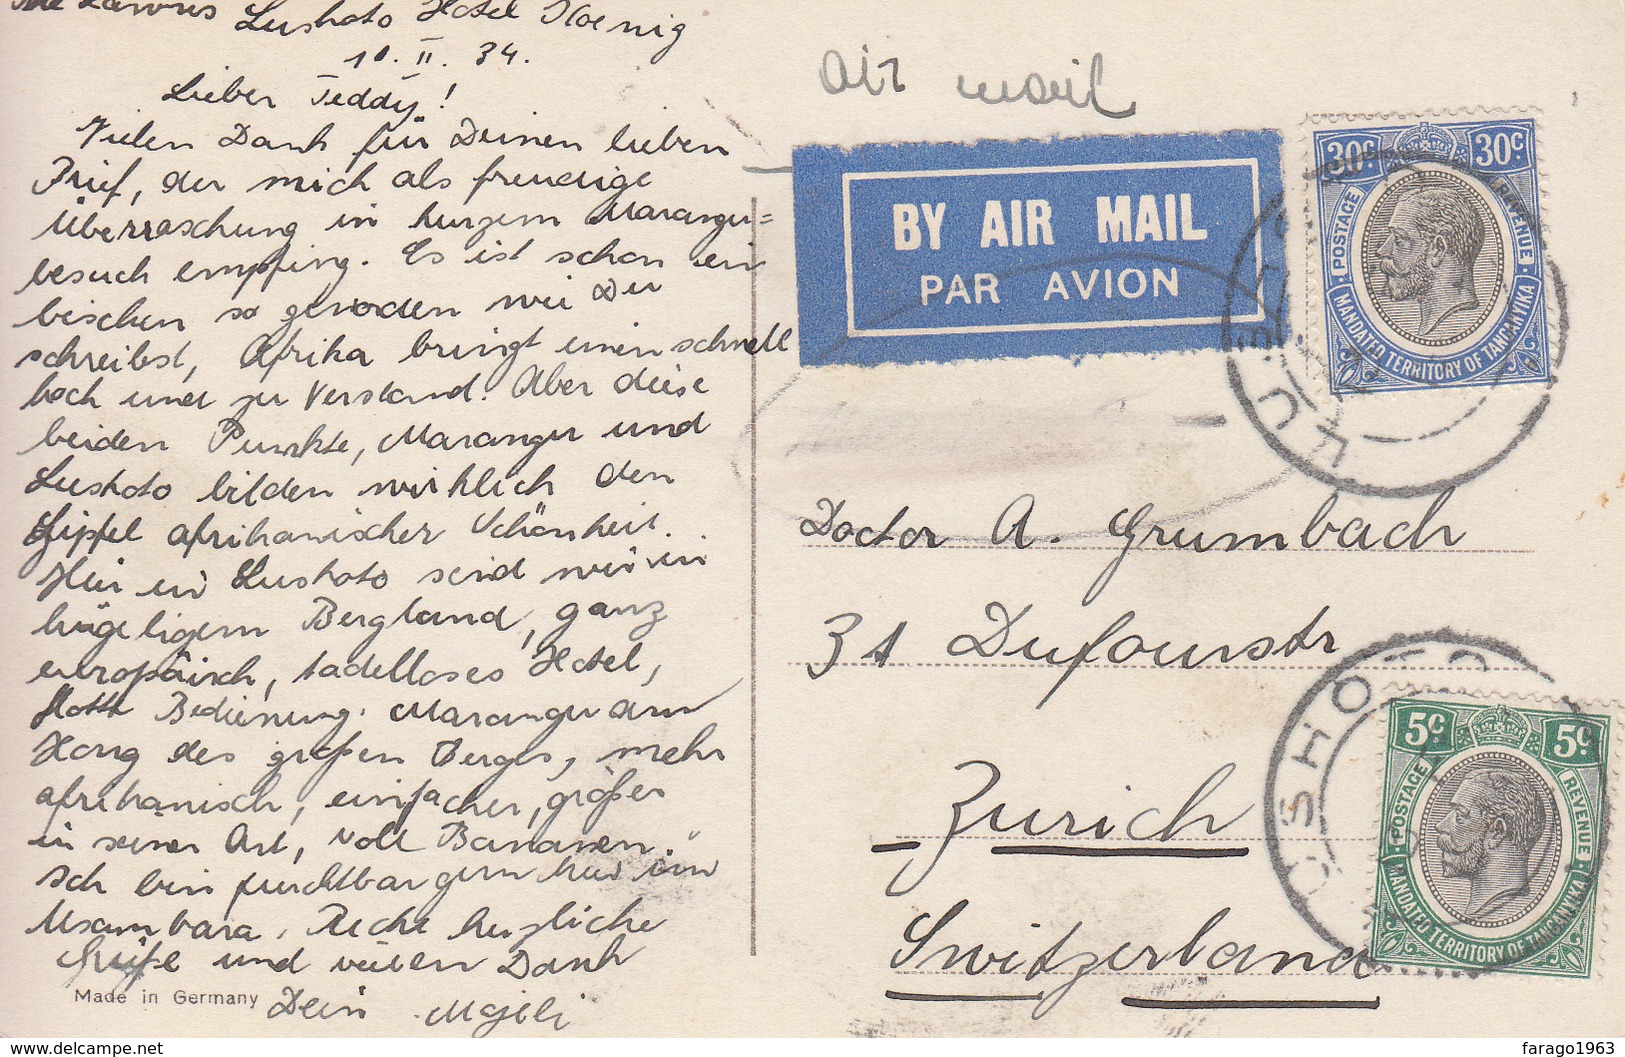 The Lawns Lushoto Hotel Koenig
10. II. 34.
Lieber Teddy!
Vielen Dank für Deinen lieben
Brief, der mich als freudige
Überraschung in kurzem Marangu=
besuch empfing. Es ist schon ein
bischen so geworden wie Du
schreibst, Afrika bringt einen schnell
hoch und zu Verstand. Aber diese
beiden Punkte, Marangu und
Lushoto bilden wirklich den
Gipfel afrikanischer Schönheit.
Hier in Lushoto sind wir in
hügeligem Bergland, ganz
europäisch, tadelloses Hotel,
flotte Bedienung. Marangu am
Hang des großen Berges, mehr
afrikanisch, einfacher, größer
in seiner Art, voll Bananen.
Ich bin furchtbar gern hier in
Usambara. Recht herzliche
Grüße und vielen Dank
Dein
Made in Germany
air mail
BY AIR MAIL
PAR AVION
30c. 30c.
POSTAGE REVENUE
MANDATED TERRITORY OF TANGANYIKA
LUSHOTO
Doctor A. Grumbach
31 Dufourstr
Zurich
Switzerland
5c. 5c.
POSTAGE REVENUE
MANDATED TERRITORY OF TANGANYIKA
LUSHOTO
Photo protected by copyright - www.delcampe.net
farago1963